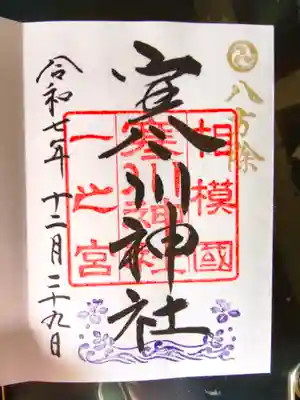 八方除
寒川神社
相模國
寒川神社
一之宮
令和七年十二月二十九日